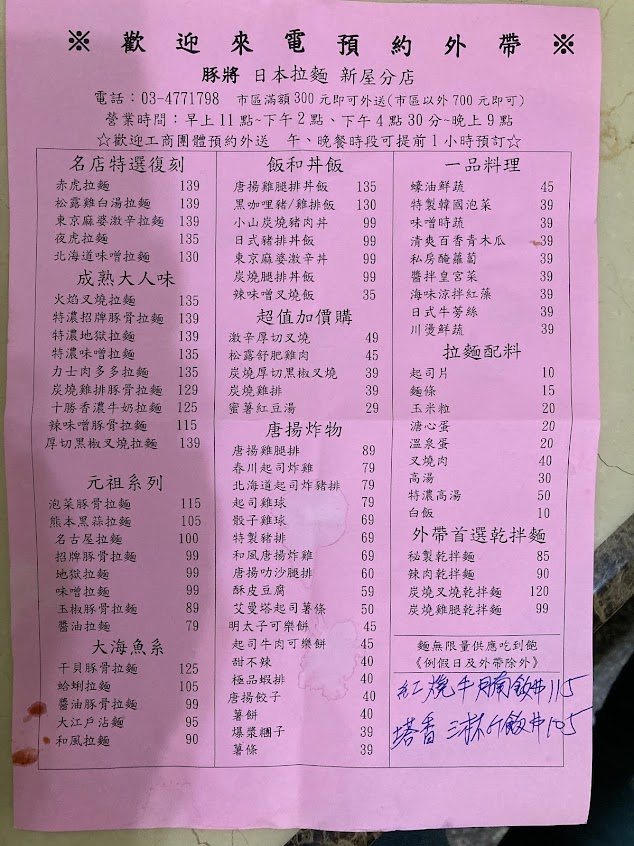 ※ 歡迎來電預約外帶 ※
豚將 日本拉麵 新屋分店
電話：03-4771798 市區滿額300元即可外送(市區以外700元即可)
營業時間：早上11點~下午2點、下午4點30分~晚上9點
☆歡迎工商團體預約外送 午、晚餐時段可提前1小時預訂☆
名店特選復刻
赤虎拉麵 139
松露雞白湯拉麵 139
東京麻婆激辛拉麵 139
夜虎拉麵 135
北海道味噌拉麵 130
成熟大人味
火焰叉燒拉麵 135
特濃招牌豚骨拉麵 139
特濃地獄拉麵 135
特濃味噌拉麵 135
力士肉多多拉麵 135
炭燒雞排豚骨拉麵 129
十勝香濃牛奶拉麵 125
辣味噌豚骨拉麵 115
厚切黑椒叉燒拉麵 139
元祖系列
泡菜豚骨拉麵 115
熊本黑蒜拉麵 105
名古屋拉麵 100
招牌豚骨拉麵 99
地獄拉麵 99
味噌拉麵 99
玉椒豚骨拉麵 89
醬油拉麵 79
大海魚系
干貝豚骨拉麵 125
蛤蜊拉麵 105
醬油豚骨拉麵 99
大江戶沾麵 95
和風拉麵 90
飯和丼飯
唐揚雞腿排丼飯 135
黑咖哩豬/雞排飯 130
小山炭燒豬肉丼 99
日式豬排丼飯 99
東京麻婆激辛丼 99
炭燒腿排丼飯 99
辣味噌叉燒飯 35
超值加價購
激辛厚切叉燒 49
松露舒肥雞肉 45
炭燒厚切黑椒叉燒 39
炭燒雞排 39
蜜薯紅豆湯 29
唐揚炸物
唐揚雞腿排 89
春川起司炸雞 79
北海道起司炸豬排 79
起司雞球 79
骰子雞球 69
特製豬排 69
和風唐揚炸雞 69
唐揚叻沙腿排 60
酥皮豆腐 59
艾曼塔起司薯條 50
明太子可樂餅 45
起司牛肉可樂餅 45
甜不辣 40
極品蝦排 40
唐揚餃子 40
薯餅 40
爆漿糰子 39
薯條 39
一品料理
蠔油鮮蔬 45
特製韓國泡菜 39
味噌時蔬 39
清爽百香青木瓜 39
私房醃蘿蔔 39
醬拌皇宮菜 39
海味涼拌紅藻 39
日式牛蒡絲 39
川燙鮮蔬 39
拉麵配料
起司片 10
麵條 15
玉米粒 20
溏心蛋 20
溫泉蛋 20
叉燒肉 40
高湯 30
特濃高湯 50
白飯 10
外帶首選乾拌麵
秘製乾拌麵 85
辣肉乾拌麵 90
炭燒叉燒乾拌麵 120
炭燒雞腿乾拌麵 99
麵無限量供應吃到飽
《例假日及外帶除外》
紅燒牛腩飯丼 115
塔香三杯 飯丼 105